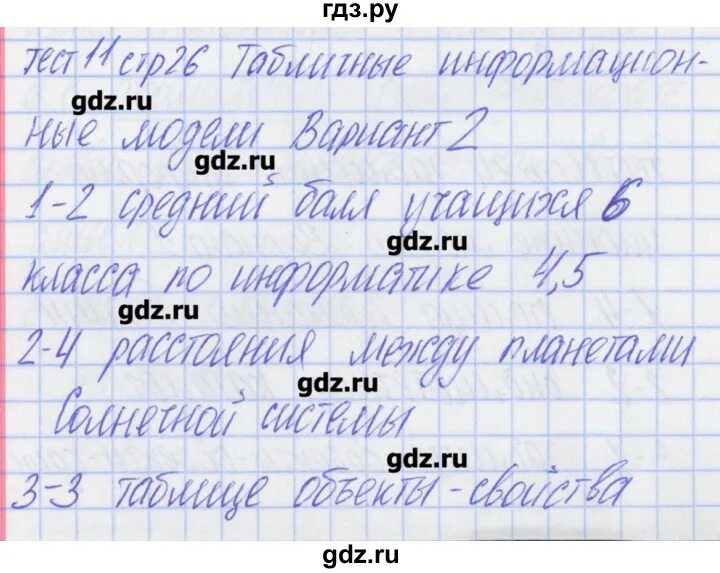 гдз.ру
тест 11 стр 26 Табличные информацион-
gdz.ru
ные модели Вариант 2
gdz.ru
1-2 средний балл учащихся 6
gdz.ru
класса по информатике 4,5
gdz.ru
2-4 расстояния между планетами
gdz.ru
Солнечной системы
gdz.ru
3-3 таблице объекты-свойства
gdz.ru